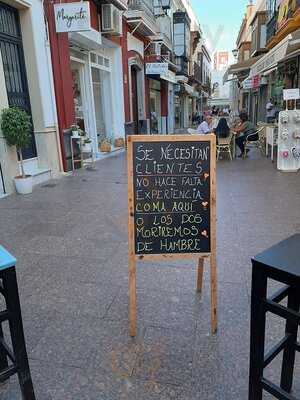 Margarita
SE NECESITAN
CLIENTES
NO HACE FALTA
EXPERIENCIA
COMA AQUÍ
O LOS DOS
MORIREMOS
DE HAMBRE